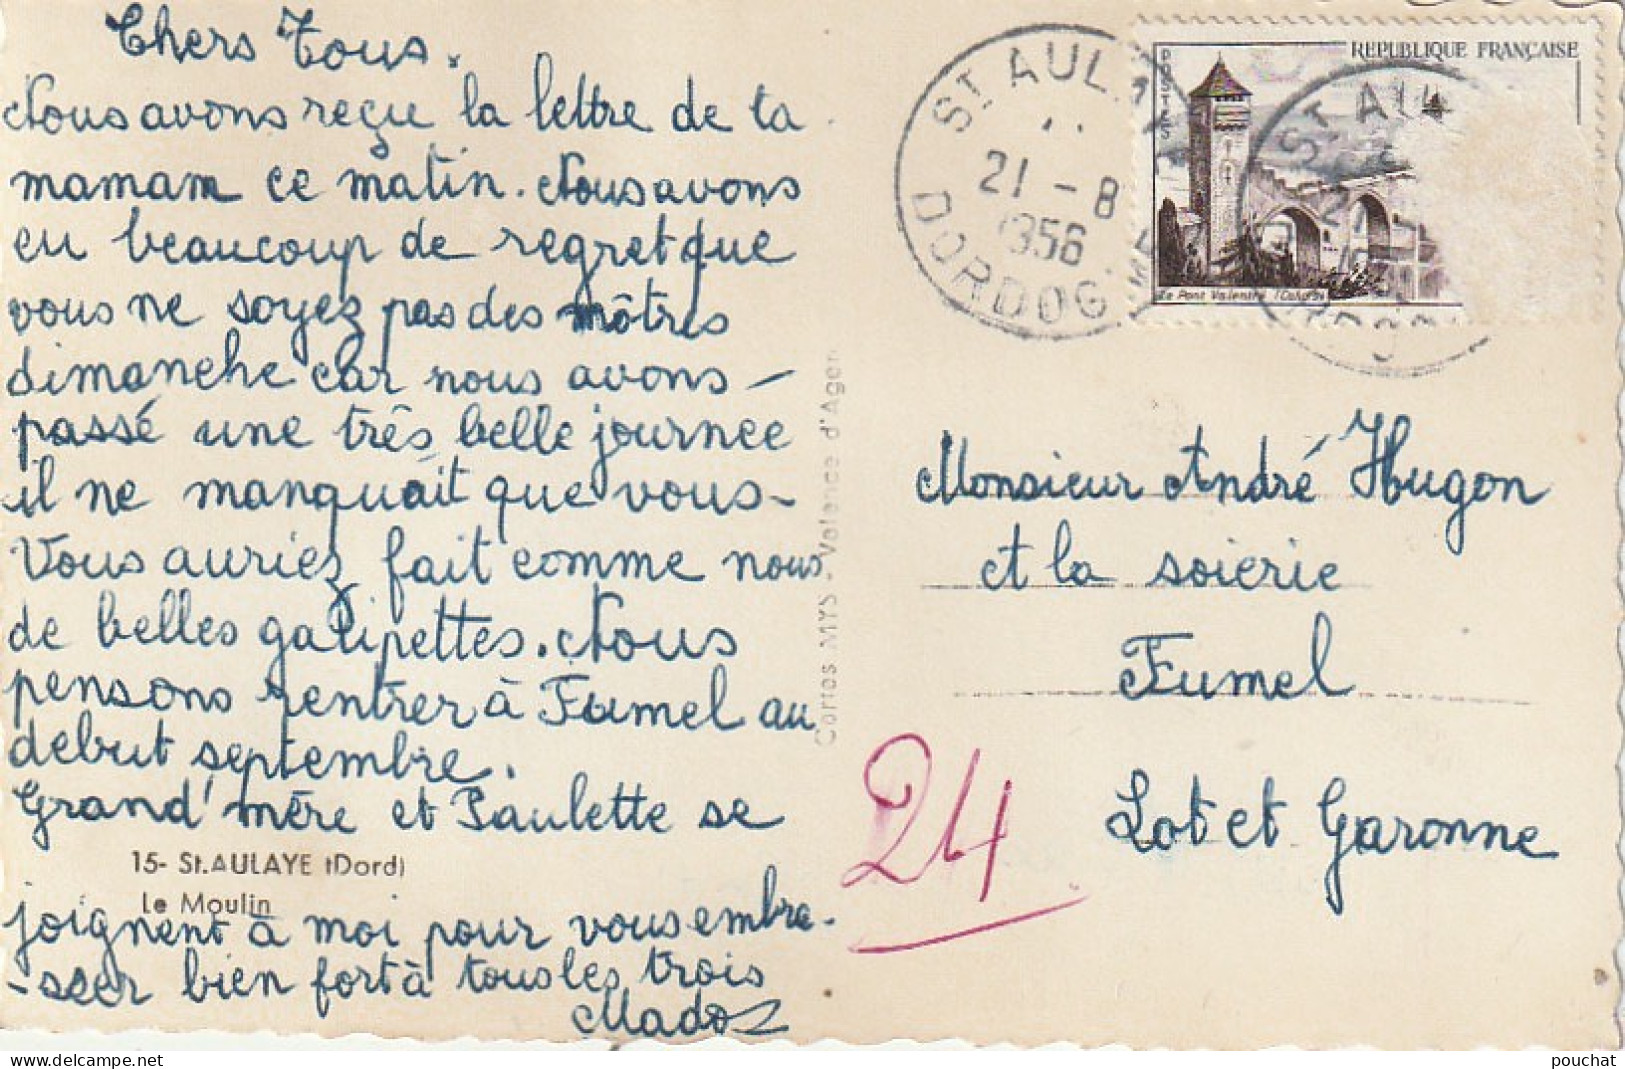 Chers Tous.
Nous avons reçu la lettre de ta
maman ce matin. Nous avons
eu beaucoup de regret que
vous ne soyez pas des nôtres
dimanche car nous avons -
passé une très belle journee
il ne manquait que vous -
Vous auriez fait comme nous
de belles galipettes. Nous
pensons rentrer à Fumel au
debut septembre.
Grand'mère et Paulette se
15- St.AULAYE (Dord)
Le Moulin
joignent à moi pour vous embra-
-sser bien fort à tous les trois
Mado
Cartes MYS - Valence d'Agen
ST AULAYE
21 - 8
1956
DORDOGNE
REPUBLIQUE FRANÇAISE
POSTES
Le Pont Valentré (Cahors)
ST AU
Monsieur André Hugon
et la soierie
Fumel
Lot et Garonne
24
delcampe.net
pouchat